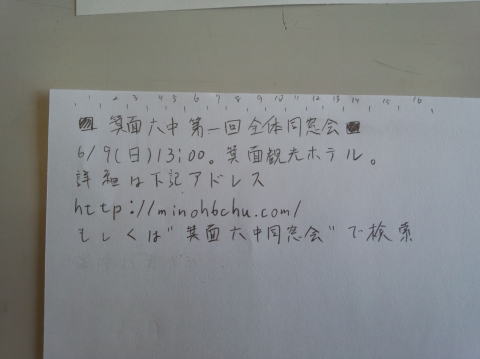 2 3 4 5 6 7 8 9 10 11 12 13 14 15 16
箕面六中第一回全体同窓会
6/9(日)13:00。箕面観光ホテル。
詳細は下記アドレス
http://minoh6chu.com/
もしくは"箕面六中同窓会"で検索